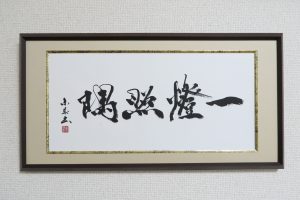 一燈照隅